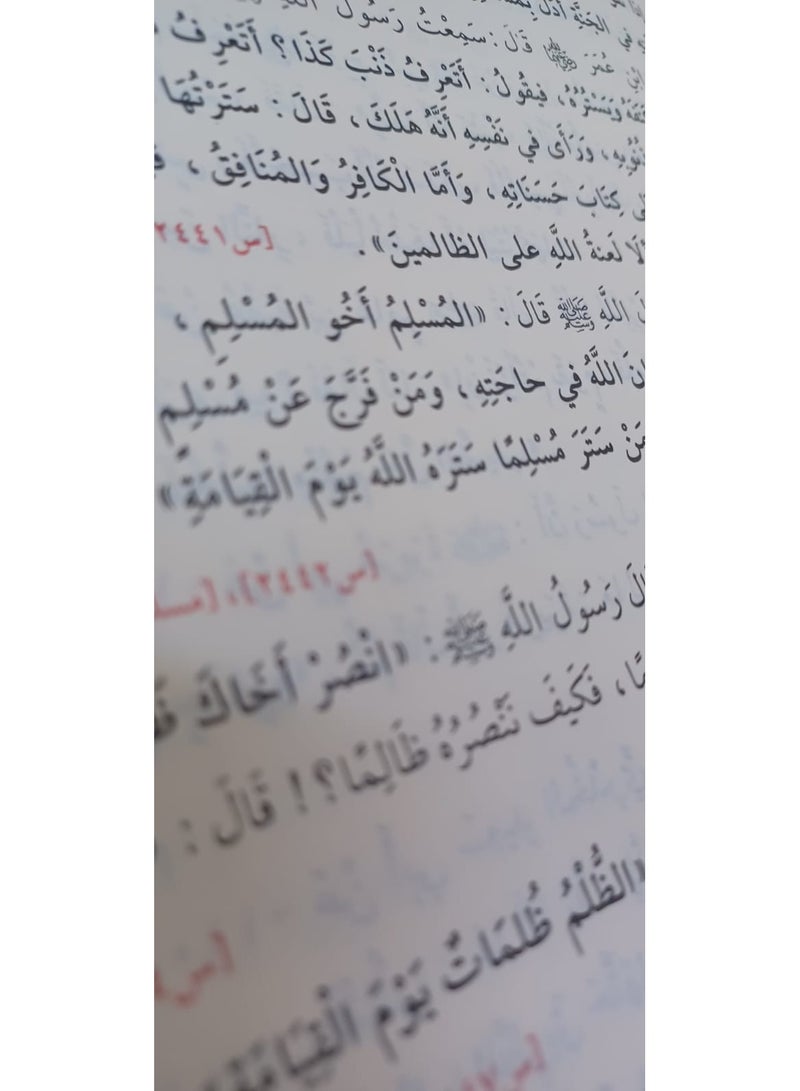 في الجَنَّةِ أَدَلُّ
عُمَرَ ﵁ قَالَ: سَمِعْتُ رَسُولَ
وَيَسْتُرُهُ، فَيَقُولُ: أَتَعْرِفُ ذَنْبَ كَذَا؟ أَتَعْرِفُ
وَرَأَى في نَفْسِهِ أَنَّهُ هَلَكَ، قَالَ: سَتَرْتُهَا
كِتَابَ حَسَنَاتِهِ، وَأَمَّا الْكَافِرُ وَالمُنَافِقُ،
لَعنةُ اللَّهِ على الظالمينَ».
[س٢٤٤١
اللَّهِ ﷺ قَالَ: «المُسْلِمُ أَخُو المُسْلِمِ،
اللَّهُ في حاجَتِهِ، وَمَنْ فَرَّجَ عَنْ مُسْلِمٍ
مَنْ سَتَرَ مُسْلِمًا سَتَرَهُ اللَّهُ يَوْمَ الْقِيَامَةِ»
[س٢٤٤٢]،
رَسُولُ اللَّهِ ﷺ: «انْصُرْ أَخَاكَ
فَكَيفَ نَنْصُرُهُ ظَالِمًا؟! قَالَ:
[س
«الظُّلْمُ ظُلمَاتٌ يَوْمَ الْقِيَامَةِ